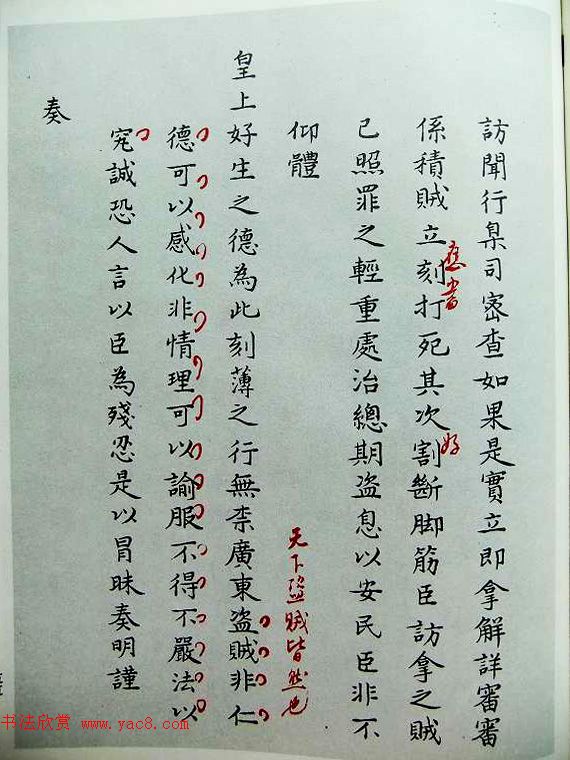 訪聞行臬司密查如果是實立即拿解詳審審
係積賊立刻打死其次割斷脚筋臣訪拿之賊
應當
好
已照罪之輕重處治總期盜息以安民臣非不
仰體
天下盜賊皆然也
皇上好生之德為此刻薄之行無柰廣東盜賊非仁
德可以感化非情理可以諭服不得不嚴法以
究誠恐人言以臣為殘忍是以冒昧奏明謹
奏
书法欣赏 www.yac8.com